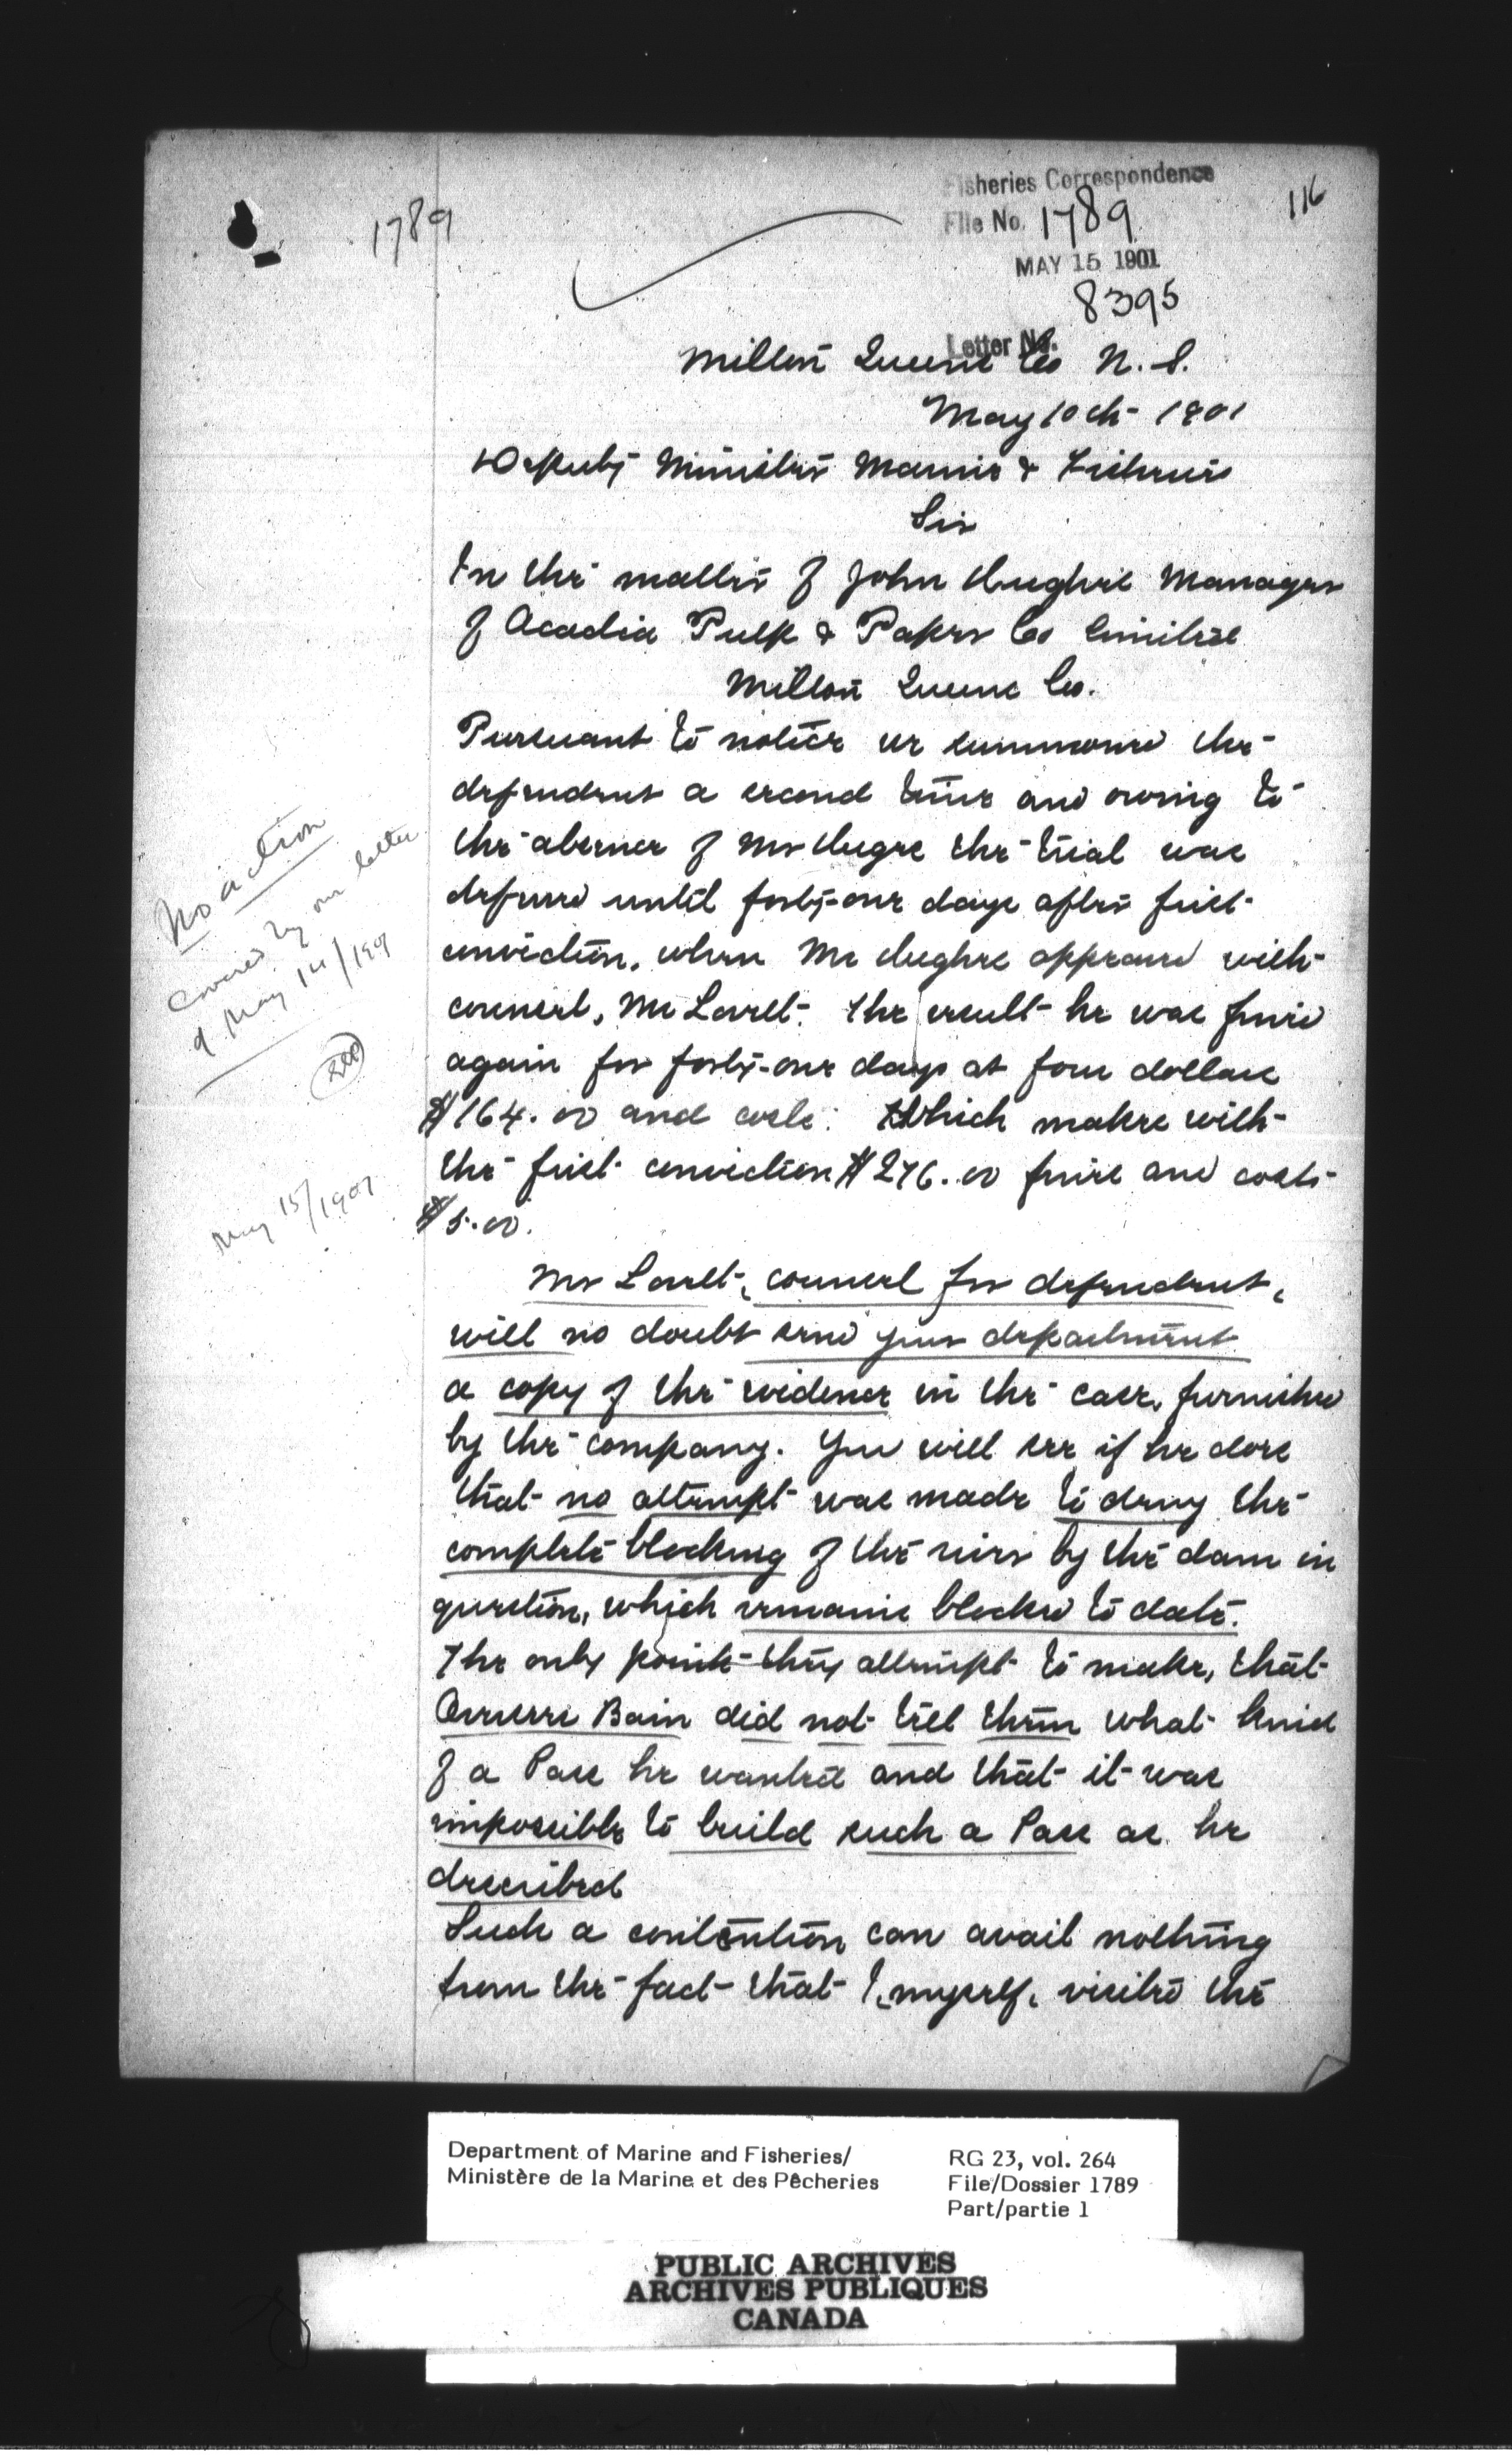 1789
Fisheries Correspondence
File No. 1789
116
MAY 15 1901
8395
Letter No.
Milton Queens Co N.S.
May 10th 1901
Deputy Minister Marine & Fisheries
Sir
In the matter of John Hughes Manager
of Acadia Pulp & Paper Co Limited
Milton Queens Co.
Pursuant to notice we summoned the
defendant a second time and owing to
the absence of Mr Hughes the trial was
deferred until forty-one days after first
conviction, when Mr Hughes appeared with
counsel, Mr Lovet. The result he was fined
again for forty-one days at four dollars
$164.00 and costs. Which makes with
the first conviction $276.00 fines and costs
$5.00.
Mr Lovet, counsel for defendant,
will no doubt send your department
a copy of the evidence in the case, furnished
by the company. You will see if he does
that no attempt was made to deny the
complete blocking of the river by the dam in
question, which remains blocked to date.
The only point they attempt to make, that
Overseer Bain did not tell them what kind
of a Pass he wanted and that it was
impossible to build such a Pass as he
described
Such a contention can avail nothing
from the fact that I, myself, visited the
No action
Covered by our letter
of May 14/1901
May 15/1901
Department of Marine and Fisheries/
Ministère de la Marine et des Pêcheries
RG 23, vol. 264
File/Dossier 1789
Part/partie 1
PUBLIC ARCHIVES
ARCHIVES PUBLIQUES
CANADA